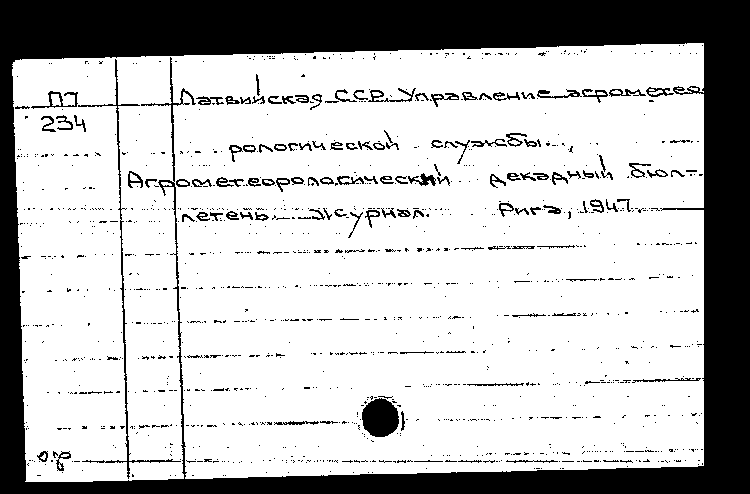 П7
Латвийская ССР. Управление агрометео-
234
рологической службы.,
Агрометеорологический декадный бюл-
летень. Журнал. Рига, 1947.